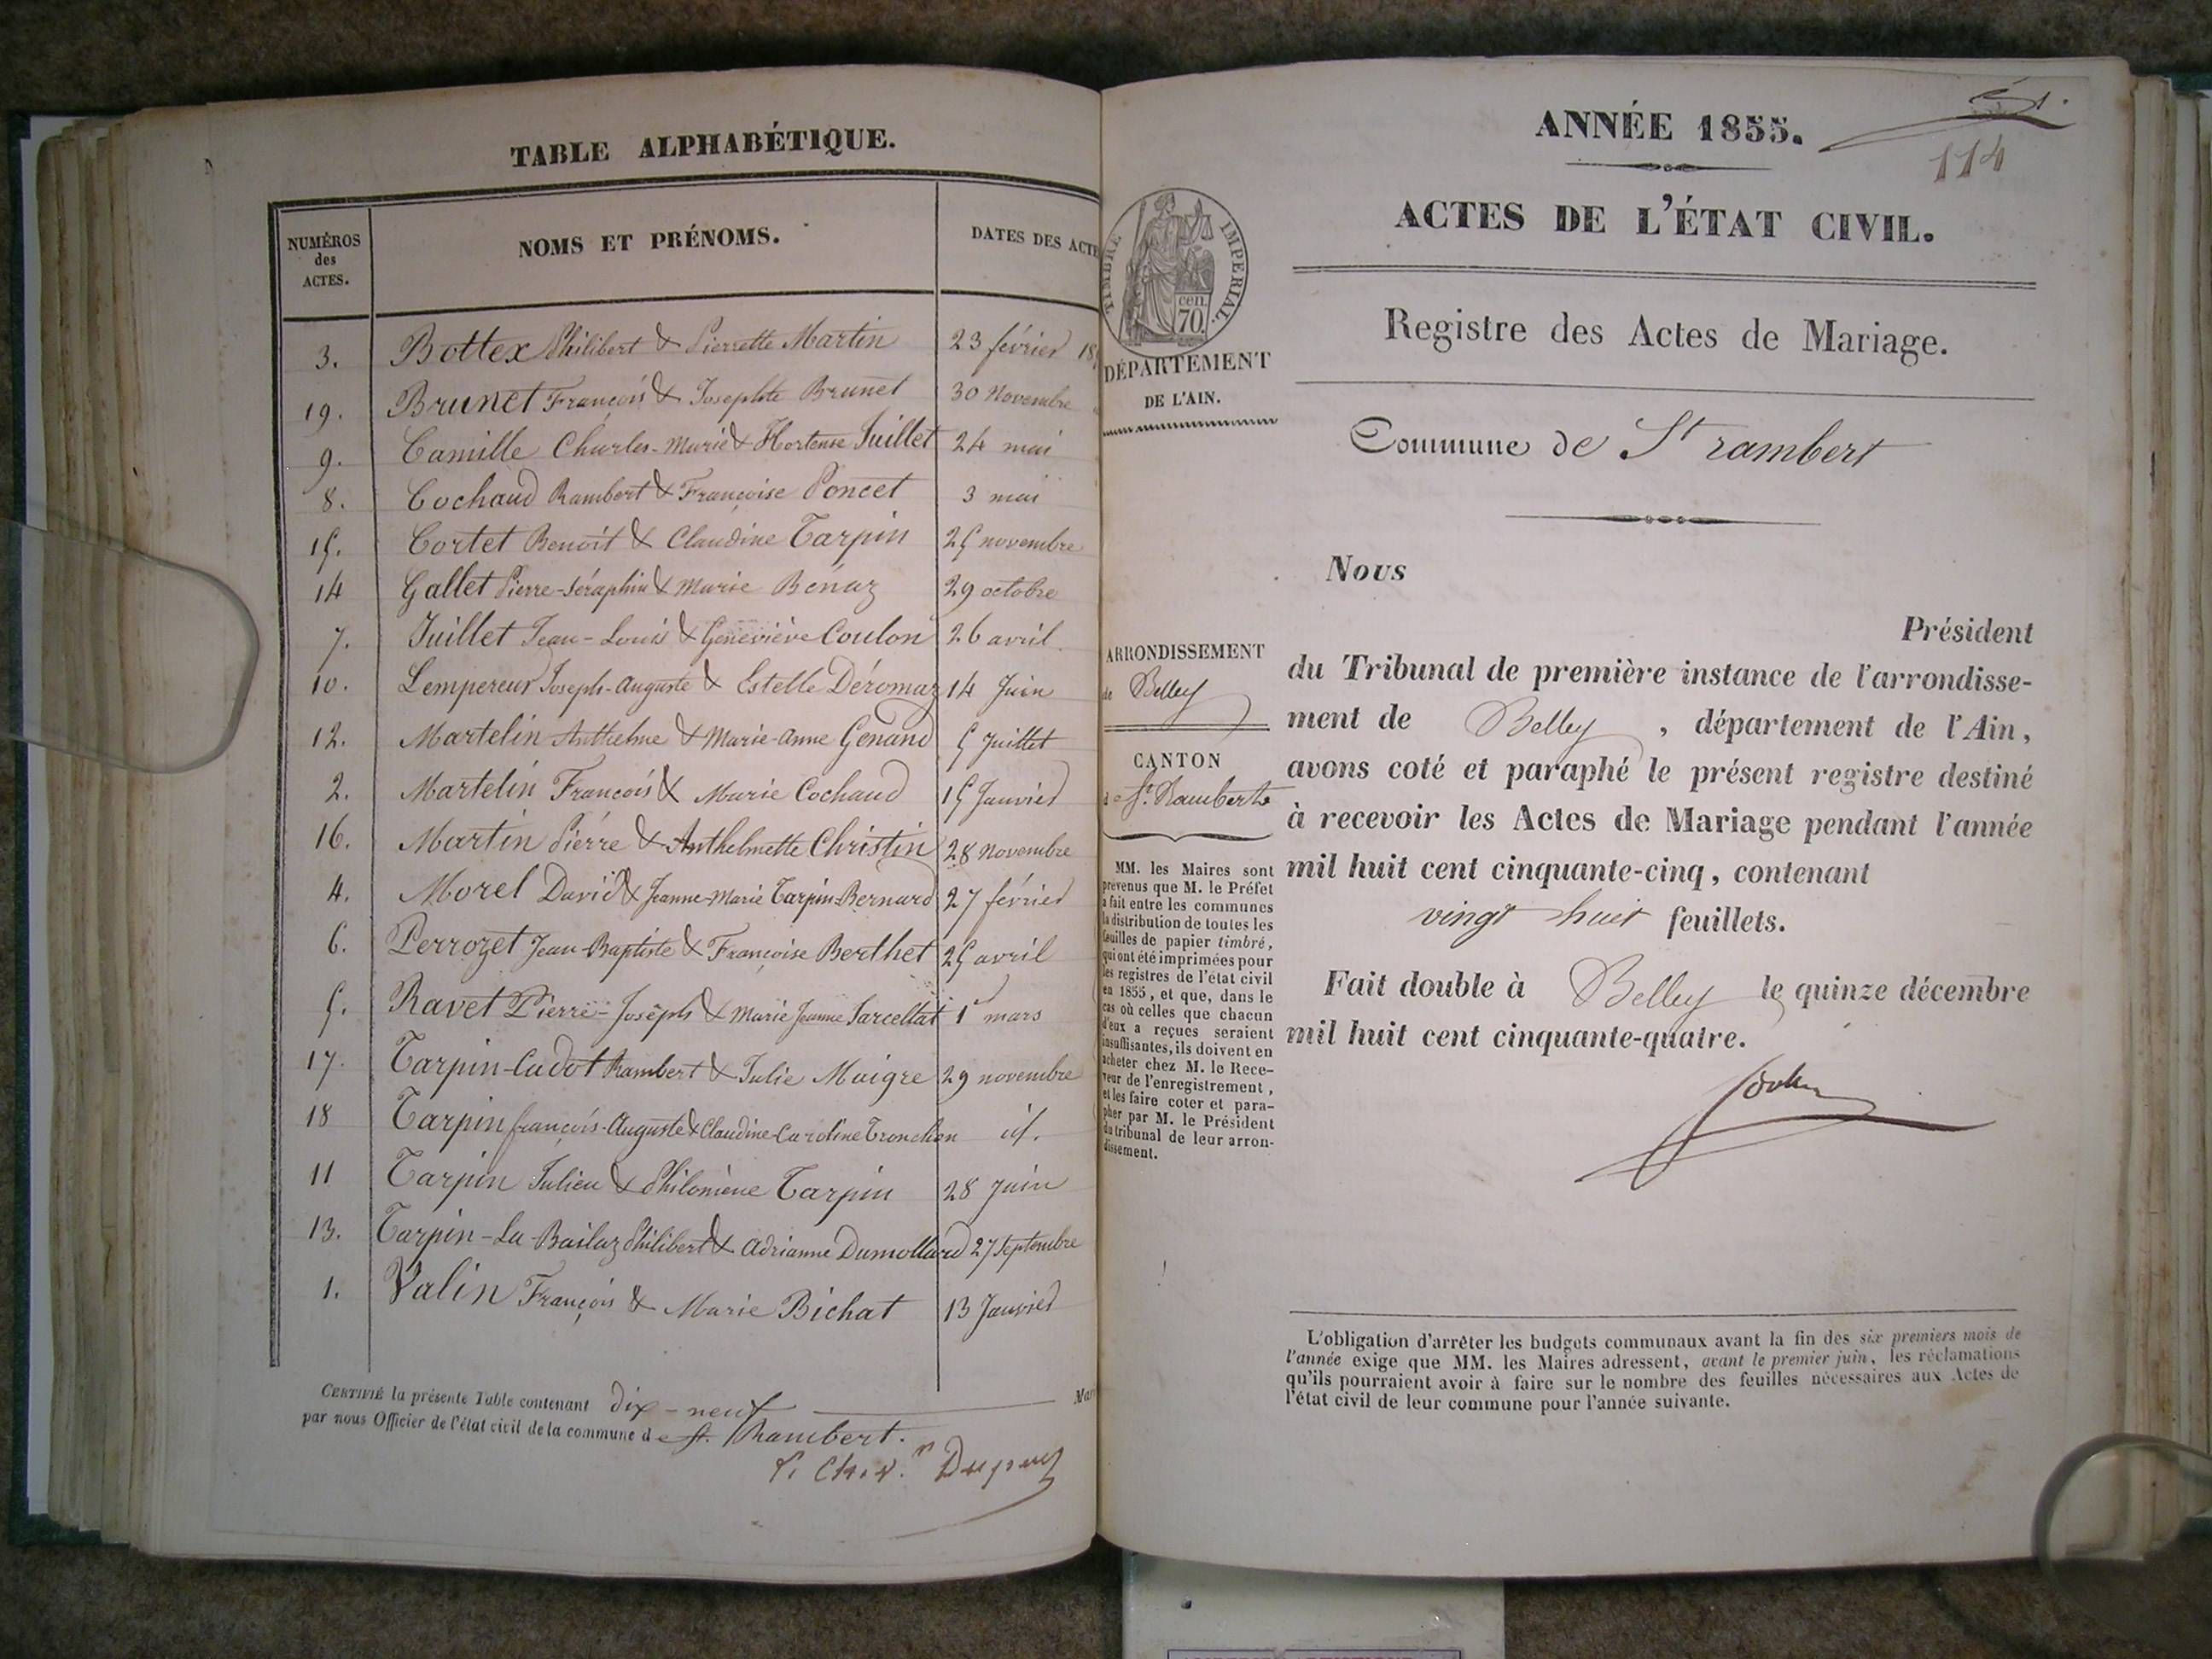 TABLE ALPHABÉTIQUE.
NUMÉROS des ACTES.
NOMS ET PRÉNOMS.
DATES DES ACTE
3. Bottex Philibert & Pierrette Martin 23 février 18
19. Brunet François & Josephte Brunet 30 Novembre
9. Camille Charles-Marie & Hortense Juillet 24 mai
8. Cochaud Rambert & Françoise Poncet 3 mai
15. Cortet Benoît & Claudine Tarpin 25 novembre
14 Gallet Pierre-Séraphin & Marie Bénaz 29 octobre
7. Juillet Jean-Louis & Geneviève Coulon 26 avril
10. Lempereur Joseph-Auguste & Estelle Déromaz 14 Juin
12. Martelin Anthelme & Marie-Anne Genand 5 Juillet
2. Martelin François & Marie Cochaud 15 Janvier
16. Martin Pierre & Anthelmette Christin 28 Novembre
4. Morel David & Jeanne-Marie Tarpin-Bernard 27 février
6. Perrozet Jean-Baptiste & Françoise Berthet 25 avril
5. Ravet Pierre-Joseph & Marie Jeanne Sarcellat 1er mars
17. Tarpin-Cadot Rambert & Julie Maigre 29 novembre
18 Tarpin françois-Auguste & Claudine-Caroline Tronchon id.
11 Tarpin Julien & Philomène Tarpin 28 Juin
13. Tarpin-La-Bailaz Philibert & Adrianne Dumollard 27 Septembre
1. Valin François & Marie Bichat 13 Janvier
CERTIFIÉ la présente Table contenant dix-neuf Mar
par nous Officier de l'état civil de la commune de St. Rambert.
Dupuy
114
ANNÉE 1855.
ACTES DE L'ÉTAT CIVIL.
TIMBRE IMPERIAL.
cen.
70.
DÉPARTEMENT
DE L'AIN.
Registre des Actes de Mariage.
Commune de St rambert
ARRONDISSEMENT
de Belley
CANTON
de St. Rambert
MM. les Maires sont
prévenus que M. le Préfet
a fait entre les communes
la distribution de toutes les
feuilles de papier timbré,
qui ont été imprimées pour
les registres de l'état civil
en 1855, et que, dans le
cas où celles que chacun
d'eux a reçues seraient
insuffisantes, ils doivent en
acheter chez M. le Rece-
veur de l'enregistrement,
et les faire coter et para-
pher par M. le Président
du tribunal de leur arron-
dissement.
Nous
Président
du Tribunal de première instance de l'arrondisse-
ment de Belley, département de l'Ain,
avons coté et paraphé le présent registre destiné
à recevoir les Actes de Mariage pendant l'année
mil huit cent cinquante-cinq, contenant
vingt huit feuillets.
Fait double à Belley le quinze décembre
mil huit cent cinquante-quatre.
L'obligation d'arrêter les budgets communaux avant la fin des six premiers mois de
l'année exige que MM. les Maires adressent, avant le premier juin, les réclamations
qu'ils pourraient avoir à faire sur le nombre des feuilles nécessaires aux Actes de
l'état civil de leur commune pour l'année suivante.